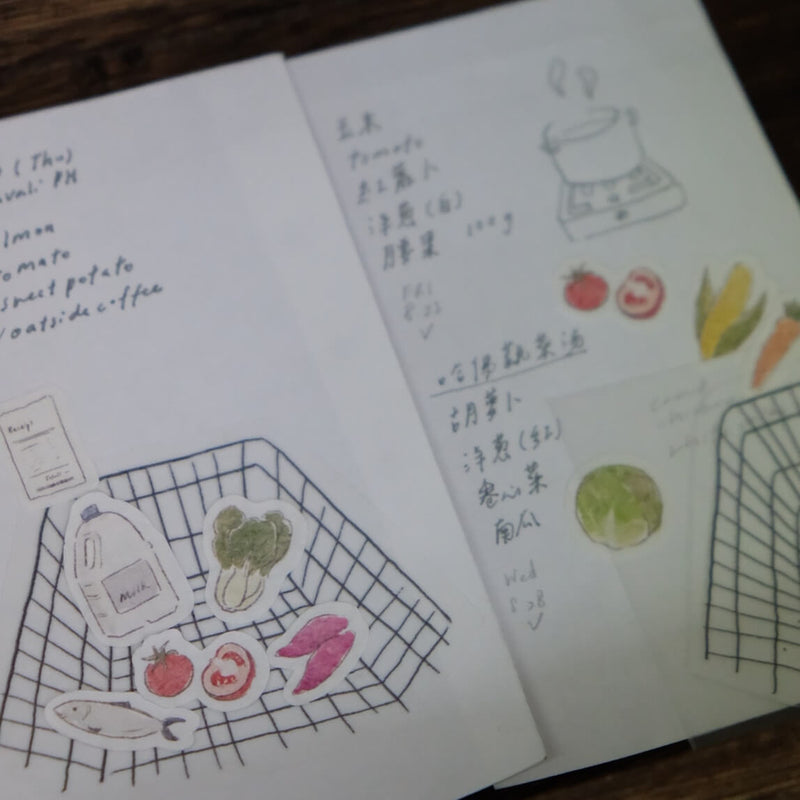 (Thu)
PM
lmon
tomato
sweet potato
/oatside coffee
Receipt
Milk
玉米
tomato
红萝卜
洋葱(白)
腰果 100g
8.23
✓
哈佛蔬菜汤
胡萝卜
洋葱(红)
卷心菜
南瓜
Wed
8.28
✓